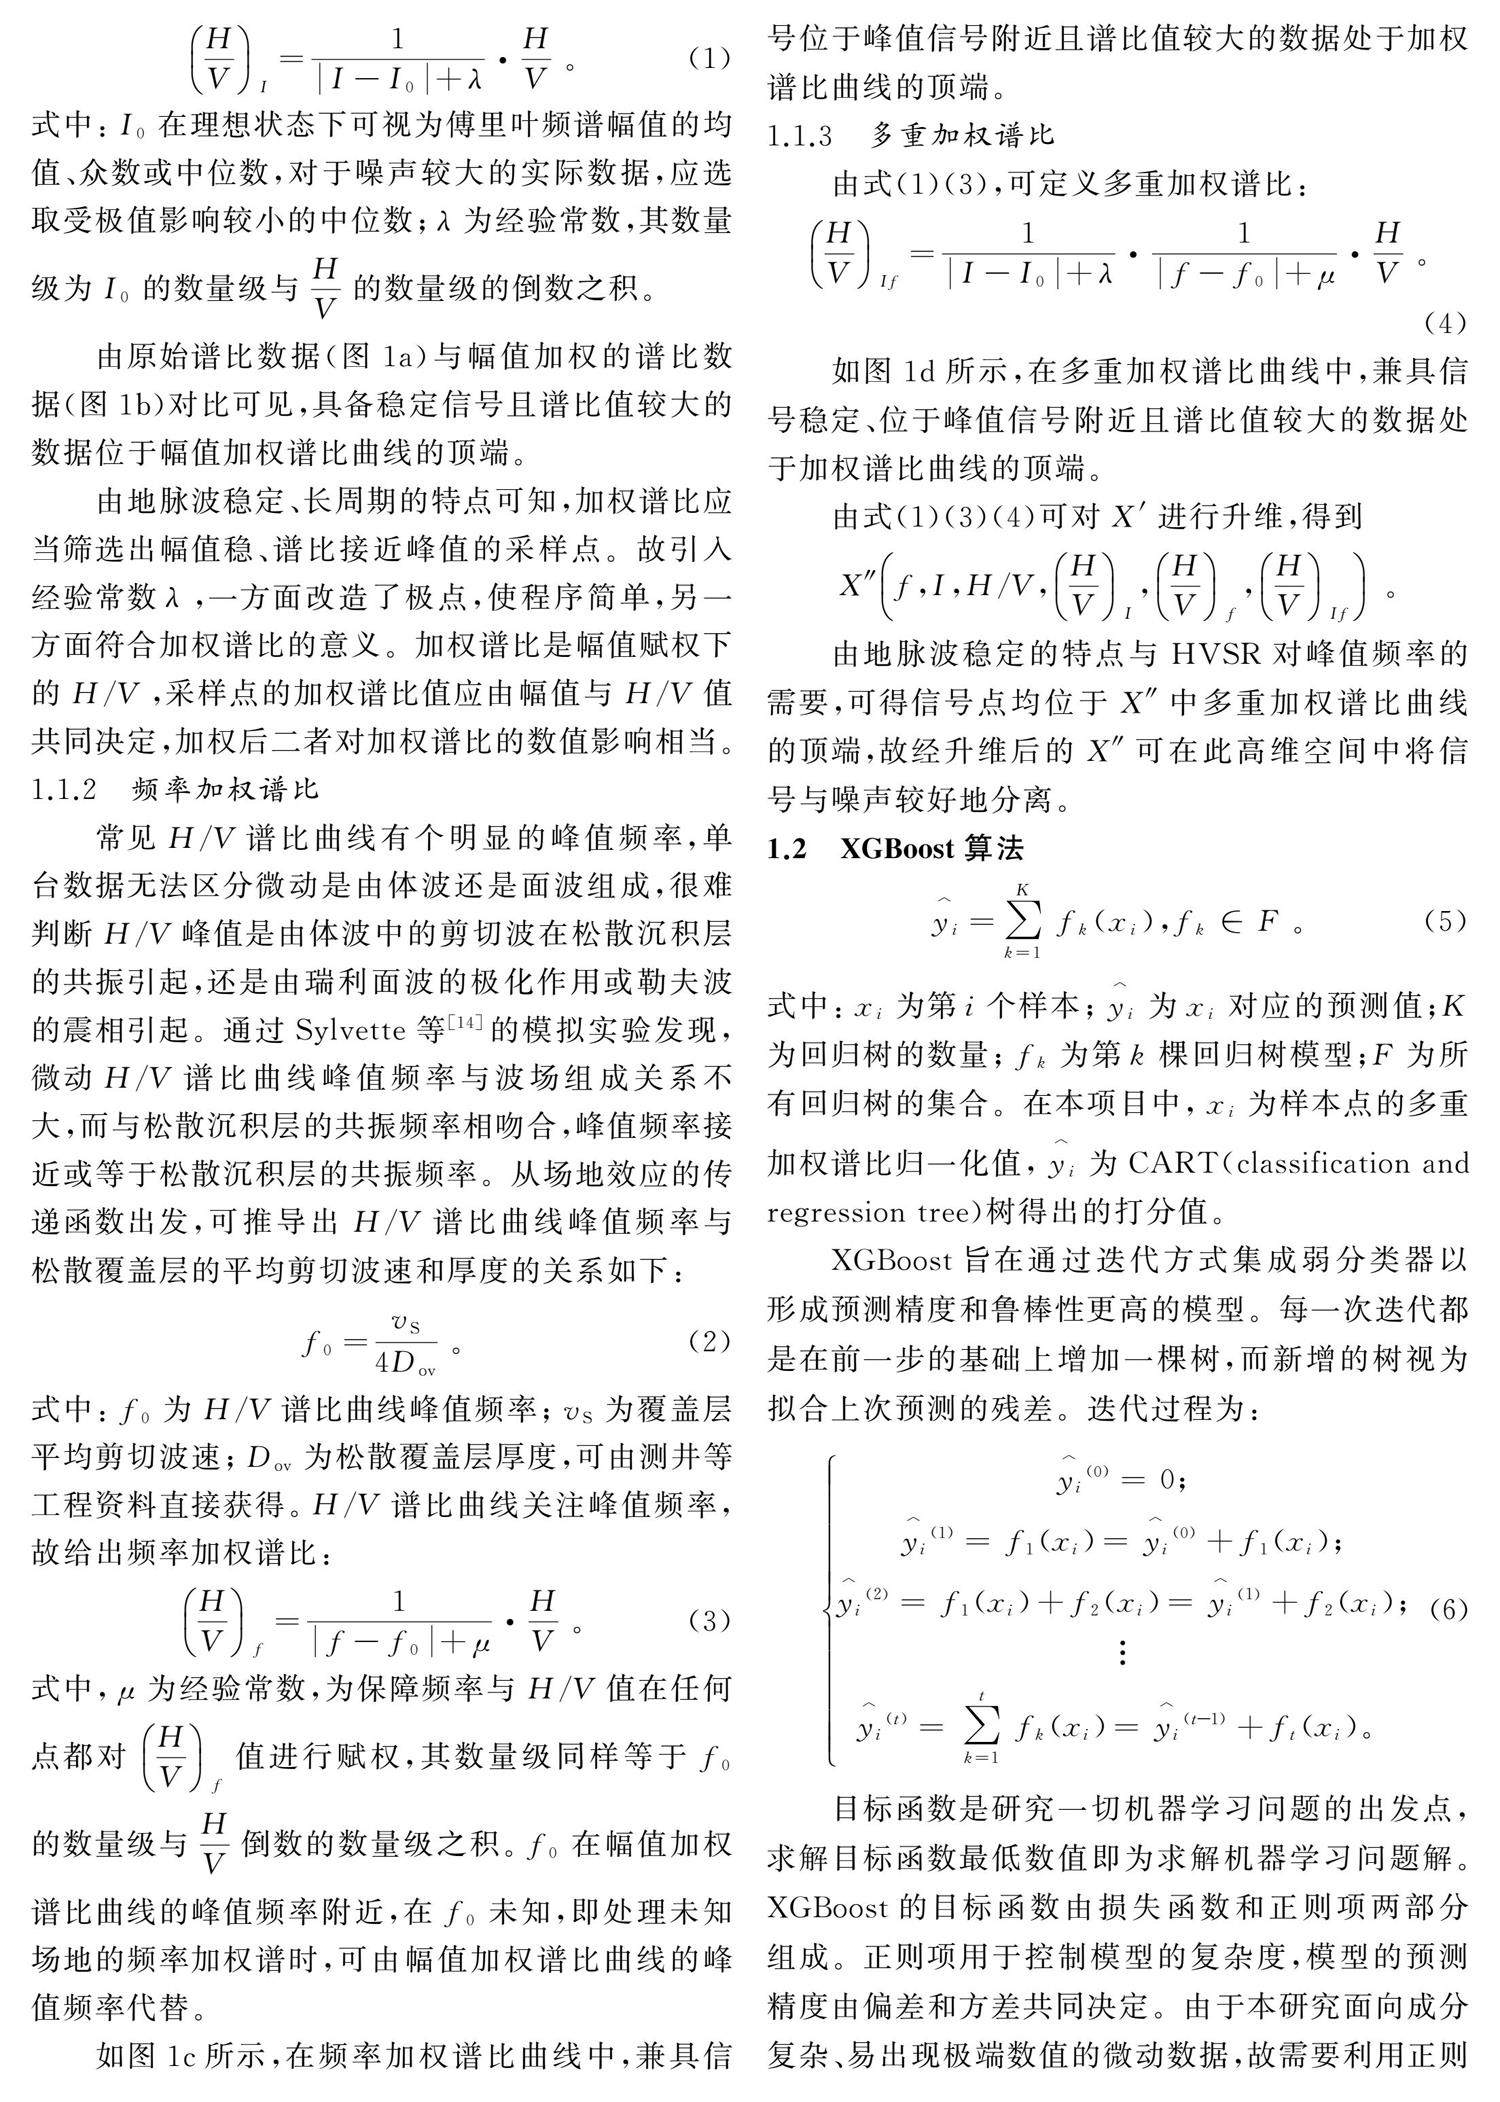 (H/V)_I = 1/(|I－I₀|＋λ) · H/V 。 (1)
式中: I₀ 在理想状态下可视为傅里叶频谱幅值的均
值、众数或中位数,对于噪声较大的实际数据,应选
取受极值影响较小的中位数; λ 为经验常数,其数量
级为 I₀ 的数量级与 H/V 的数量级的倒数之积。
由原始谱比数据(图 1a)与幅值加权的谱比数
据(图 1b)对比可见,具备稳定信号且谱比值较大的
数据位于幅值加权谱比曲线的顶端。
由地脉波稳定、长周期的特点可知,加权谱比应
当筛选出幅值稳、谱比接近峰值的采样点。故引入
经验常数 λ ,一方面改造了极点,使程序简单,另一
方面符合加权谱比的意义。加权谱比是幅值赋权下
的 H/V ,采样点的加权谱比值应由幅值与 H/V 值
共同决定,加权后二者对加权谱比的数值影响相当。
1.1.2 频率加权谱比
常见 H/V 谱比曲线有个明显的峰值频率,单
台数据无法区分微动是由体波还是面波组成,很难
判断 H/V 峰值是由体波中的剪切波在松散沉积层
的共振引起,还是由瑞利面波的极化作用或勒夫波
的震相引起。通过 Sylvette 等[14]的模拟实验发现,
微动 H/V 谱比曲线峰值频率与波场组成关系不
大,而与松散沉积层的共振频率相吻合,峰值频率接
近或等于松散沉积层的共振频率。从场地效应的传
递函数出发,可推导出 H/V 谱比曲线峰值频率与
松散覆盖层的平均剪切波速和厚度的关系如下:
f₀ = v_S/(4D_ov) 。 (2)
式中: f₀ 为 H/V 谱比曲线峰值频率; v_S 为覆盖层
平均剪切波速; D_ov 为松散覆盖层厚度,可由测井等
工程资料直接获得。H/V 谱比曲线关注峰值频率,
故给出频率加权谱比:
(H/V)_f = 1/(|f－f₀|＋μ) · H/V 。 (3)
式中, μ 为经验常数,为保障频率与 H/V 值在任何
点都对 (H/V)_f 值进行赋权,其数量级同样等于 f₀
的数量级与 H/V 倒数的数量级之积。f₀ 在幅值加权
谱比曲线的峰值频率附近,在 f₀ 未知,即处理未知
场地的频率加权谱时,可由幅值加权谱比曲线的峰
值频率代替。
如图 1c 所示,在频率加权谱比曲线中,兼具信
号位于峰值信号附近且谱比值较大的数据处于加权
谱比曲线的顶端。
1.1.3 多重加权谱比
由式(1)(3),可定义多重加权谱比:
(H/V)_If = 1/(|I－I₀|＋λ) · 1/(|f－f₀|＋μ) · H/V 。
(4)
如图 1d 所示,在多重加权谱比曲线中,兼具信
号稳定、位于峰值信号附近且谱比值较大的数据处
于加权谱比曲线的顶端。
由式(1)(3)(4)可对 X′ 进行升维,得到
X″(f,I,H/V,(H/V)_I,(H/V)_f,(H/V)_If) 。
由地脉波稳定的特点与 HVSR 对峰值频率的
需要,可得信号点均位于 X″ 中多重加权谱比曲线
的顶端,故经升维后的 X″ 可在此高维空间中将信
号与噪声较好地分离。
1.2 XGBoost 算法
ŷ_i = ∑_{k=1}^{K} f_k(x_i), f_k ∈ F 。 (5)
式中: x_i 为第 i 个样本; ŷ_i 为 x_i 对应的预测值;K
为回归树的数量; f_k 为第 k 棵回归树模型;F 为所
有回归树的集合。在本项目中, x_i 为样本点的多重
加权谱比归一化值, ŷ_i 为 CART(classification and
regression tree)树得出的打分值。
XGBoost 旨在通过迭代方式集成弱分类器以
形成预测精度和鲁棒性更高的模型。每一次迭代都
是在前一步的基础上增加一棵树,而新增的树视为
拟合上次预测的残差。迭代过程为:
ŷ_i^(0) = 0;
ŷ_i^(1) = f₁(x_i) = ŷ_i^(0) + f₁(x_i);
ŷ_i^(2) = f₁(x_i) + f₂(x_i) = ŷ_i^(1) + f₂(x_i); (6)
⋮
ŷ_i^(t) = ∑_{k=1}^{t} f_k(x_i) = ŷ_i^(t−1) + f_t(x_i)。
目标函数是研究一切机器学习问题的出发点,
求解目标函数最低数值即为求解机器学习问题解。
XGBoost 的目标函数由损失函数和正则项两部分
组成。正则项用于控制模型的复杂度,模型的预测
精度由偏差和方差共同决定。由于本研究面向成分
复杂、易出现极端数值的微动数据,故需要利用正则